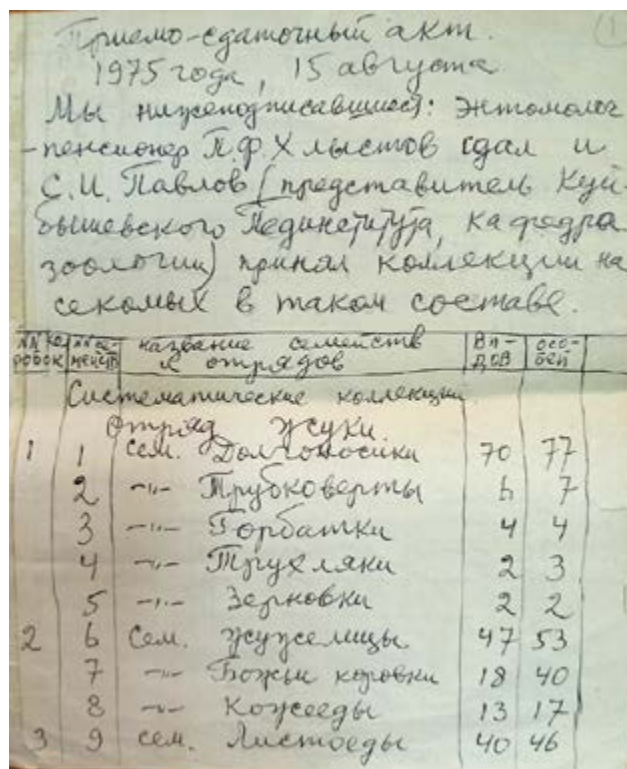 Приемо-сдаточный акт. (1
1975 года, 15 августа
Мы нижеподписавшиеся: Энтомолог
-пенсионер П.Ф. Хлыстов сдал и
С.И. Павлов (представитель Куй-
бышевского Пединститута, кафедра
зоологии) принял коллекции на
секомых в таком составе.
NN ко робок | NN се- мейств | название семейств и отрядов | Ви- дов | осо- бей
Систематические коллекции
Отряд Жуки.
1 1 сем. Долгоносики 70 77
2 -"- Трубковерты 6 7
3 -"- Горбатки 4 4
4 -"- Трухляки 2 3
5 -"- Зерновки 2 2
2 6 Сем. Жужелицы 47 53
7 -"- Божьи коровки 18 40
8 -"- Кожееды 13 17
3 9 сем. Листоеды 40 46